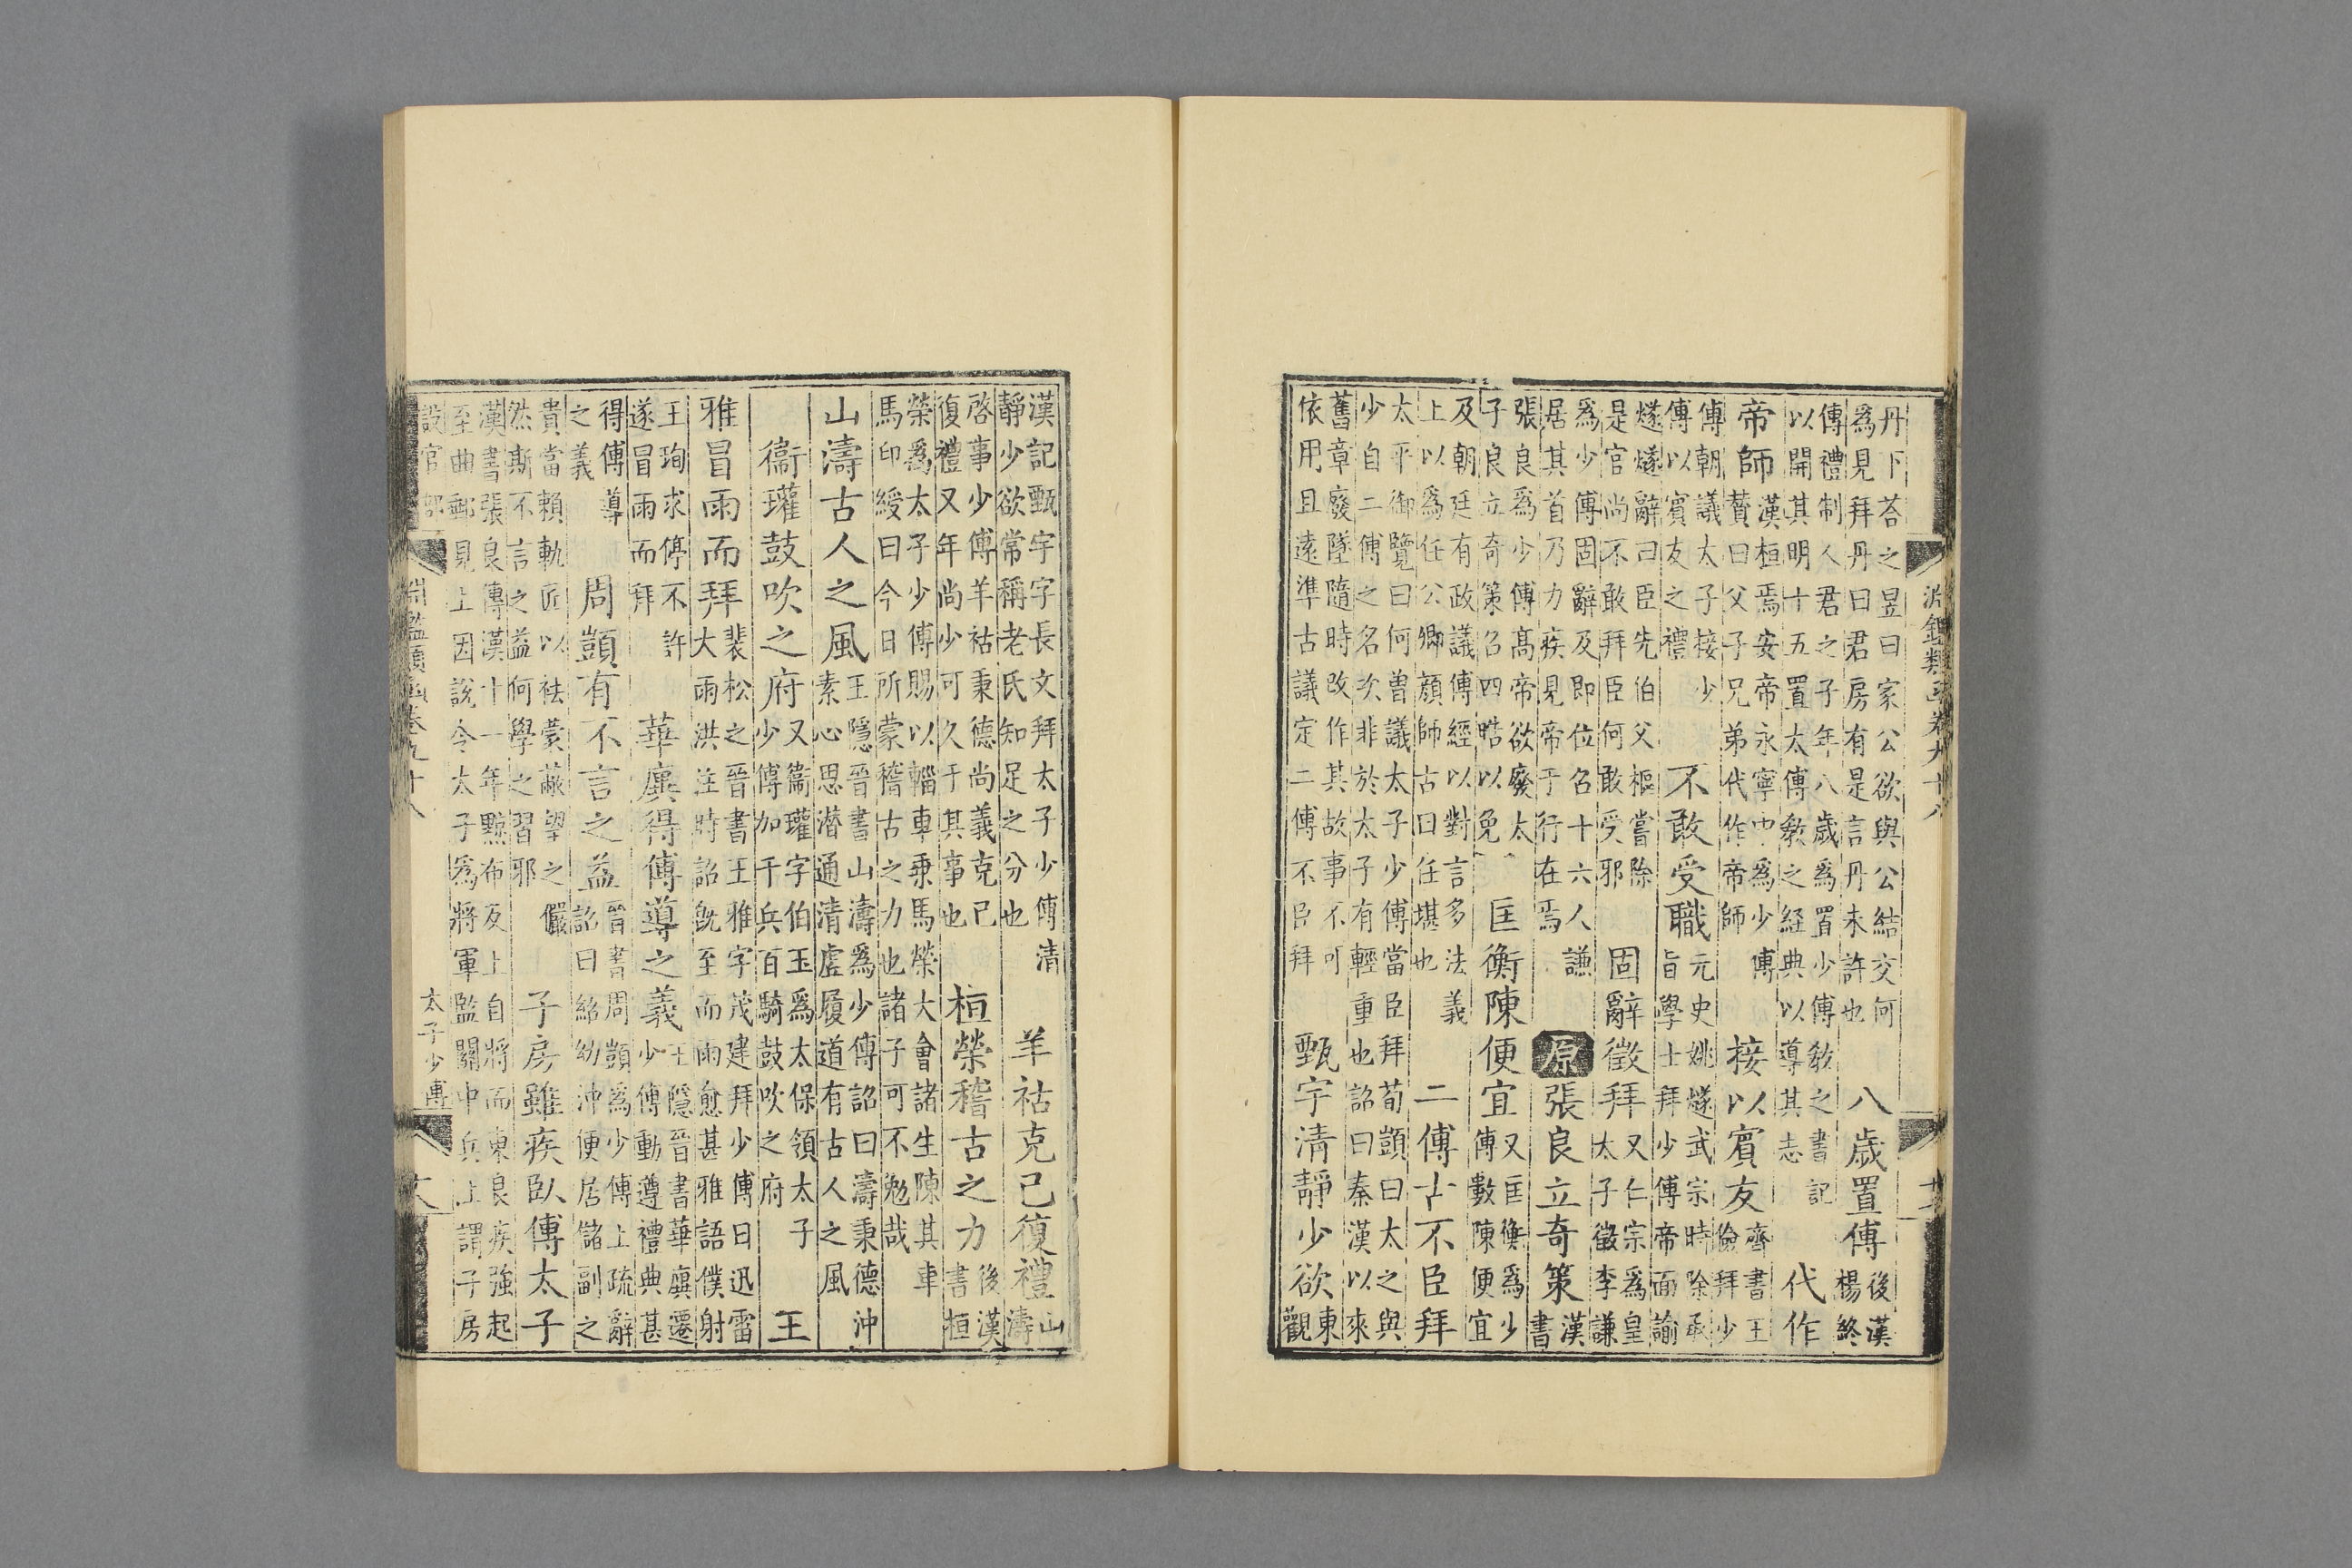 淵鑑類函卷九十八
丹下荅之昱曰家公欲與公結交何
爲見拜丹曰君房有是言丹未許也
八歲置傅
後漢
楊終
傳禮制人君之子年八歲爲置少傅敎之書記
以開其明十五置太傅敎之経典以導其志
代作
帝師
漢桓焉安帝永寧中爲少傅
贊曰父子兄弟代作帝師
接以賓友
齊書王
儉拜少
傅朝議太子接少
傅以賓友之禮
不敢受職
元史姚燧武宗時除承
旨學士拜少傅帝面諭
燧燧辭曰臣先伯父樞嘗除
是官尚不敢拜臣何敢受邪
固辭徵拜
又仁宗爲皇
太子徵李謙
爲少傅固辭及即位召十六人謙
居其首乃力疾見帝于行在焉
原張良立奇策
漢
書
張良爲少傅高帝欲廢太
子良立奇策召四皓以免
匡衡陳便宜
又匡衡爲少
傅數陳便宜
及朝廷有政議傅經以對言多法義
上以爲任公卿顏師古曰任堪也
二傅古不臣拜
太平御覽曰何曾議太子少傅當臣拜荀顗曰太之與
少自二傅之名次非於太子有輕重也詔曰秦漢以來
舊章廢墜隨時改作其故事不可
依用且遠準古議定二傅不臣拜
甄宇清靜少欲
東
觀
漢記甄宇字長文拜太子少傅清
靜少欲常稱老氏知足之分也
羊祜克己復禮
山
濤
啓事少傅羊祜秉德尚義克己
復禮又年尚少可久于其事也
桓榮稽古之力
後漢
書桓
榮爲太子少傅賜以輜車乗馬榮大會諸生陳其車
馬印綬曰今日所蒙稽古之力也諸子可不勉哉
山濤古人之風
王隱晉書山濤爲少傅詔曰濤秉德沖
素心思潜通清虛履道有古人之風
衞瓘鼓吹之府
又衞瓘字伯玉爲太保領太子
少傅加千兵百騎鼓吹之府
王
雅冒雨而拜
裴松之晉書王雅字茂建拜少傅曰迅雷
大雨洪注時詔旣至而雨愈甚雅語僕射
王珣求停不許
遂冒雨而拜
華廙得傅導之義
王隱晉書華廙遷
少傅動遵禮典甚
得傅導
之義
周顗有不言之益
晉書周顗爲少傅上疏辭
詔曰紹幼沖便居儲副之
貴當賴軌匠以袪蒙蔽望之儼
然斯不言之益何學之習邪
子房雖疾臥傅太子
漢書張良傳漢十一年黥布反上自將而東良疾強起
至曲郵見上因說令太子爲將軍監關中兵上謂子房
設官部
淵鑑類函卷九十八
太子少傅